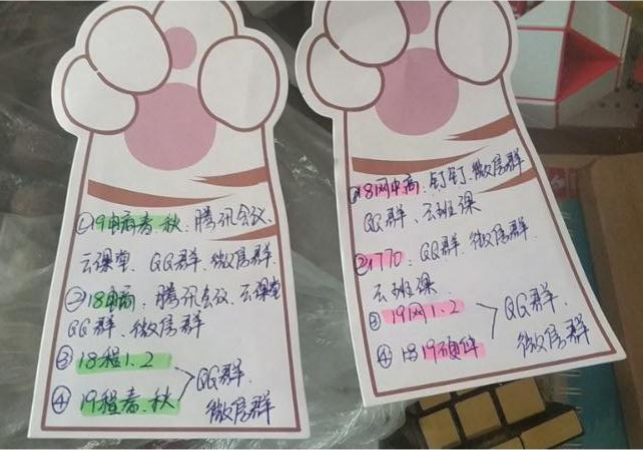 ①19电商春.秋：腾讯会议、
云课堂、QQ群、微信群
②18电商：腾讯会议、云课堂
QQ群、微信群
③18程1.2
④19程春.秋
QQ群.
微信群
①18网中高：钉钉、微信群
QQ群、云班课
②1770：QQ群、微信群.
云班课
③19网1.2
④18 19硬件
QQ群.
微信群